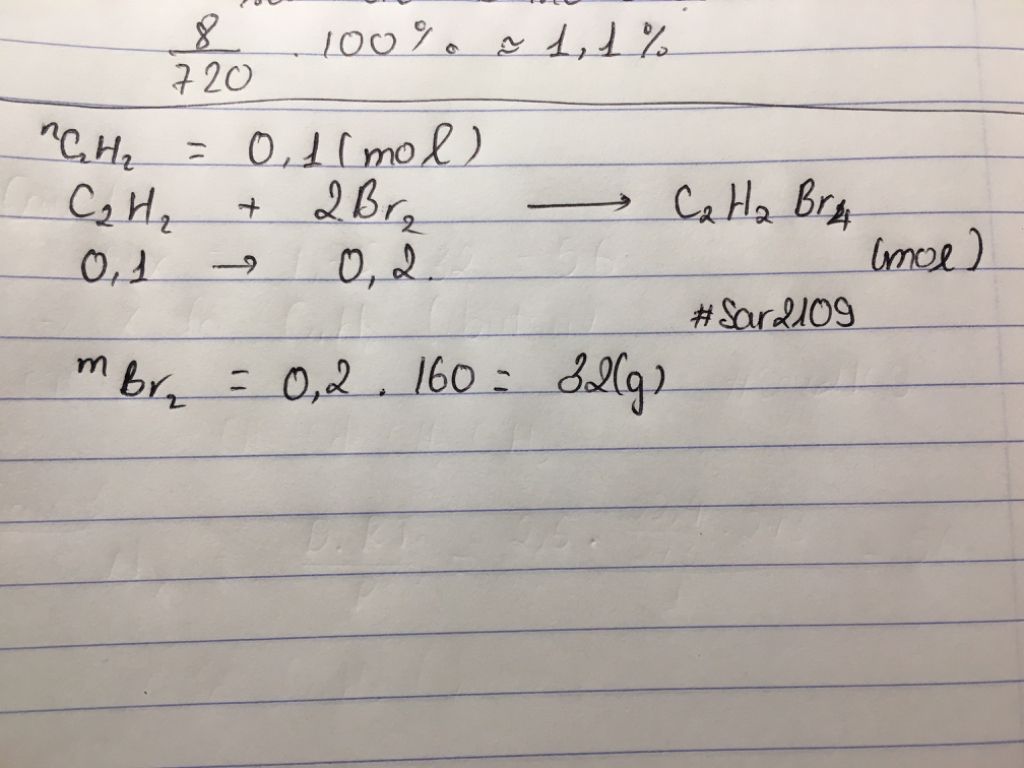 8/720 . 100% ≈ 1,1%
nC₂H₂ = 0,1 (mol)
C₂H₂ + 2Br₂ ⟶ C₂H₂Br₄
0,1 → 0,2. (mol)
#Sar2109
mBr₂ = 0,2 . 160 = 32(g)